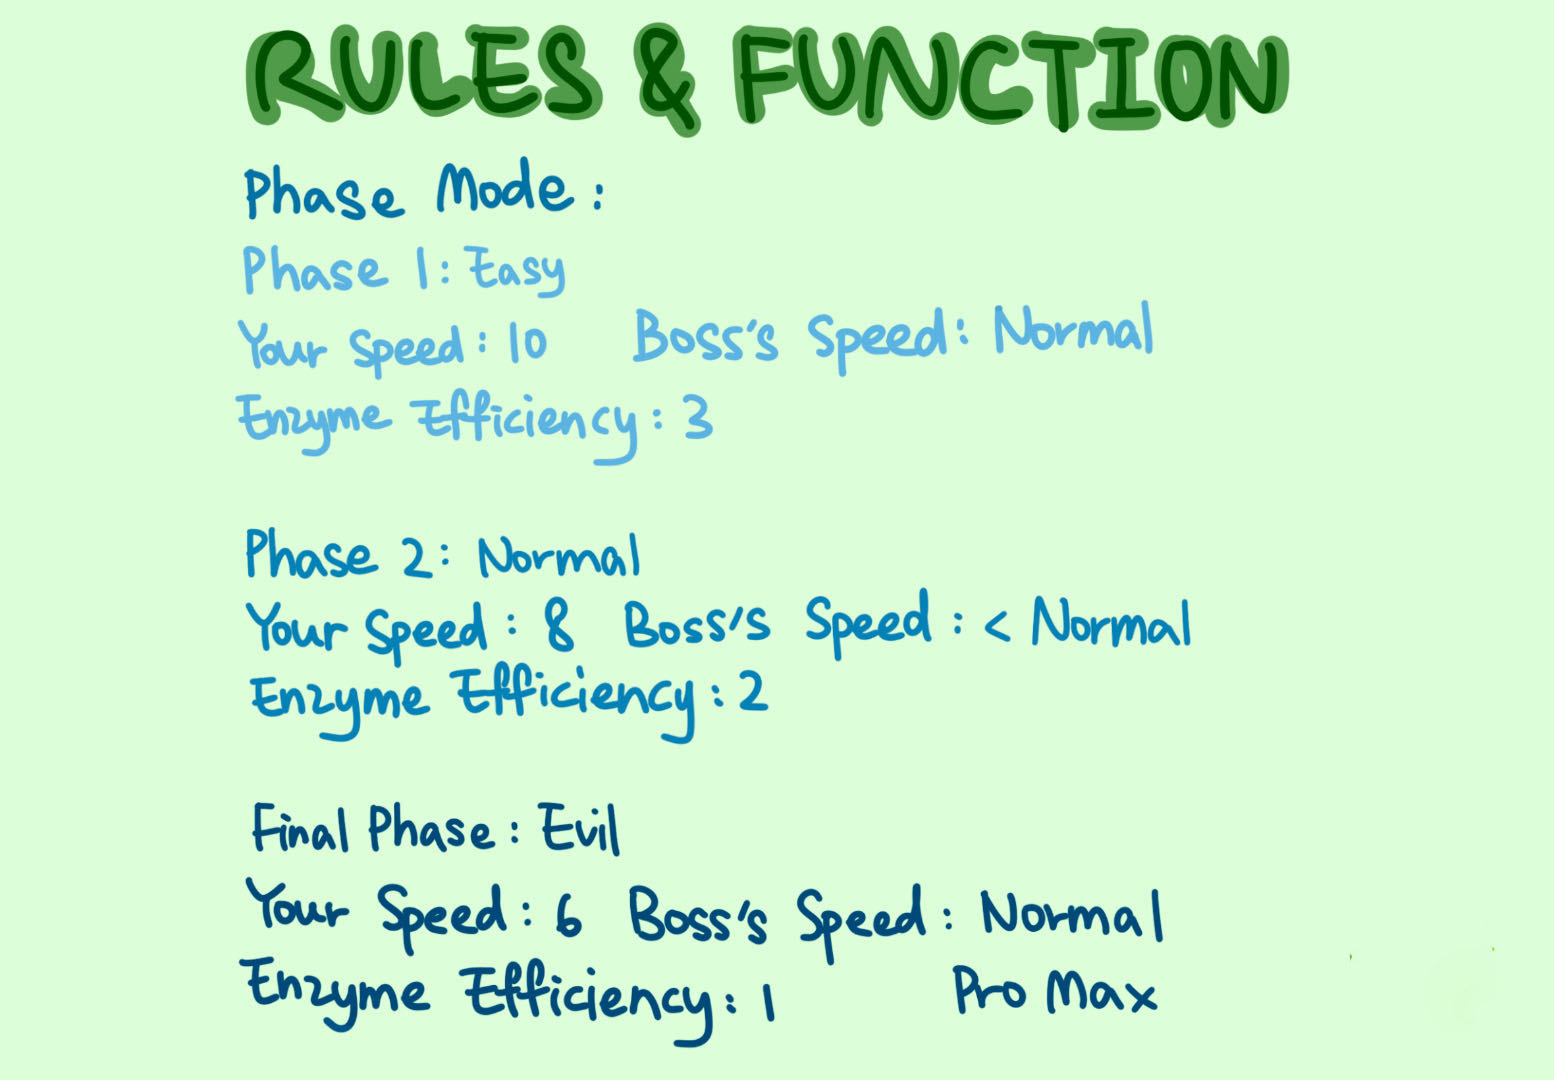 RULES & FUNCTION
Phase Mode:
Phase 1: Easy
Your Speed: 10 Boss's Speed: Normal
Enzyme Efficiency: 3
Phase 2: Normal
Your Speed: 8 Boss's Speed: < Normal
Enzyme Efficiency: 2
Final Phase: Evil
Your Speed: 6 Boss's Speed: Normal
Enzyme Efficiency: 1 Pro Max